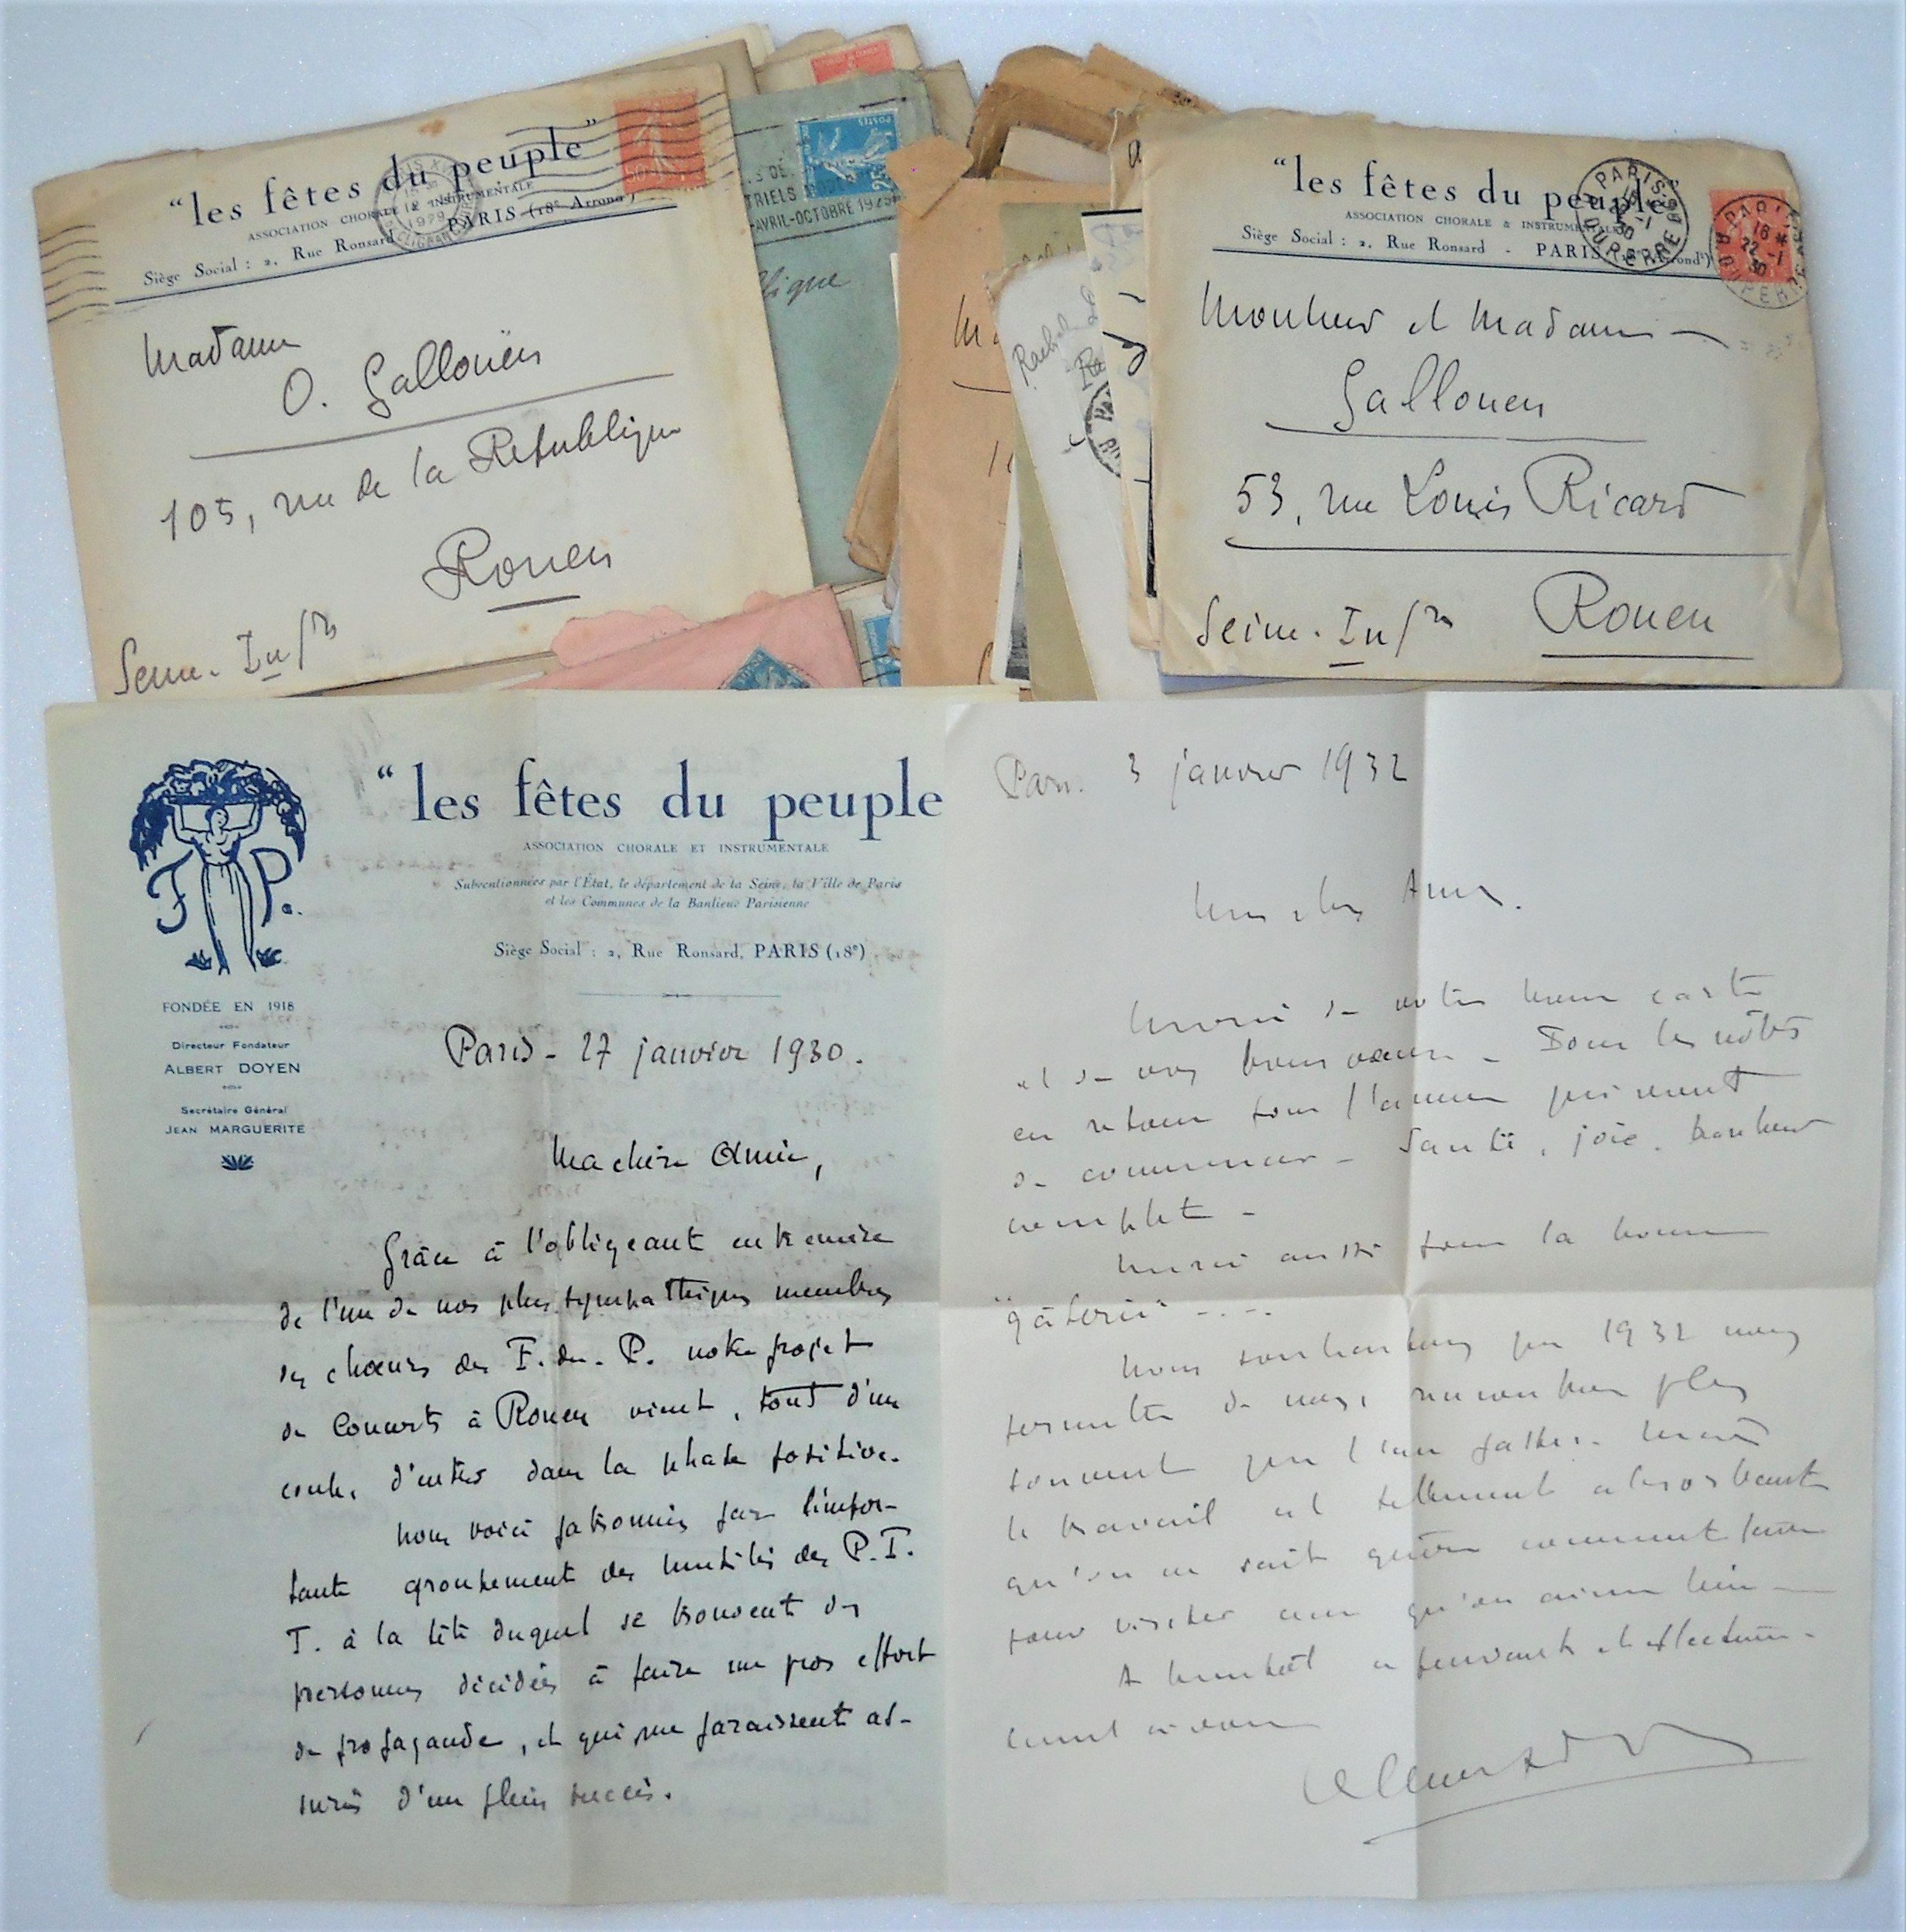 “les fêtes du peuple”
ASSOCIATION CHORALE & INSTRUMENTALE
Siège Social : 2, Rue Ronsard - PARIS (18e Arrondt)
1929
Madame
O. Gallouën
105, rue de la République
Rouen
Seine-Infre
POSTES
25c
TRIELS
AVRIL-OCTOBRE 1925
Rachel
“les fêtes du peuple”
ASSOCIATION CHORALE & INSTRUMENTALE
Siège Social : 2, Rue Ronsard - PARIS (18e Arrondt)
PARIS
22 -1
30
R. DUPERRE
PARIS
16
22 -1
30
R. DUPERRE
Monsieur et Madame
Gallouen
53, rue Louis Ricard
Rouen
Seine-Infre
F P.
“les fêtes du peuple
ASSOCIATION CHORALE ET INSTRUMENTALE
Subventionnées par l'État, le département de la Seine, la Ville de Paris
et les Communes de la Banlieue Parisienne
Siège Social : 2, Rue Ronsard, PARIS (18e)
FONDÉE EN 1918
Directeur Fondateur
ALBERT DOYEN
Secrétaire Général
JEAN MARGUERITE
Paris - 27 janvier 1930.
Ma chère Amie,
Grâce à l'obligeant entremise
de l'un de nos plus sympathiques membres
des chœurs des F. du. P. notre projet
de Concerts à Rouen vient, tout d'un
coup, d'entrer dans la phase positive.
Nous voici patronnés par l'impor-
tant groupement des Mutilés des P.T.
T. à la tête duquel se trouvent des
personnes décidées à faire un gros effort
de propagande, et qui me paraissent as-
surés d'un plein succès.
Paris. 3 janvier 1932
Mes chers Amis.
Merci de votre bonne carte
et de vos bons vœux - Tous les nôtres
en retour pour l'année qui vient
de commencer - Santé, joie, bonheur
complet -
Merci aussi pour la bonne
"gâterie" ----
Nous souhaitons que 1932 nous
permette de nous rencontrer plus
souvent que l'an passé. Mais
le travail est tellement absorbant
qu'on ne sait guère comment faire
pour visiter ceux qu'on aime bien -
A bientôt et affectueu-